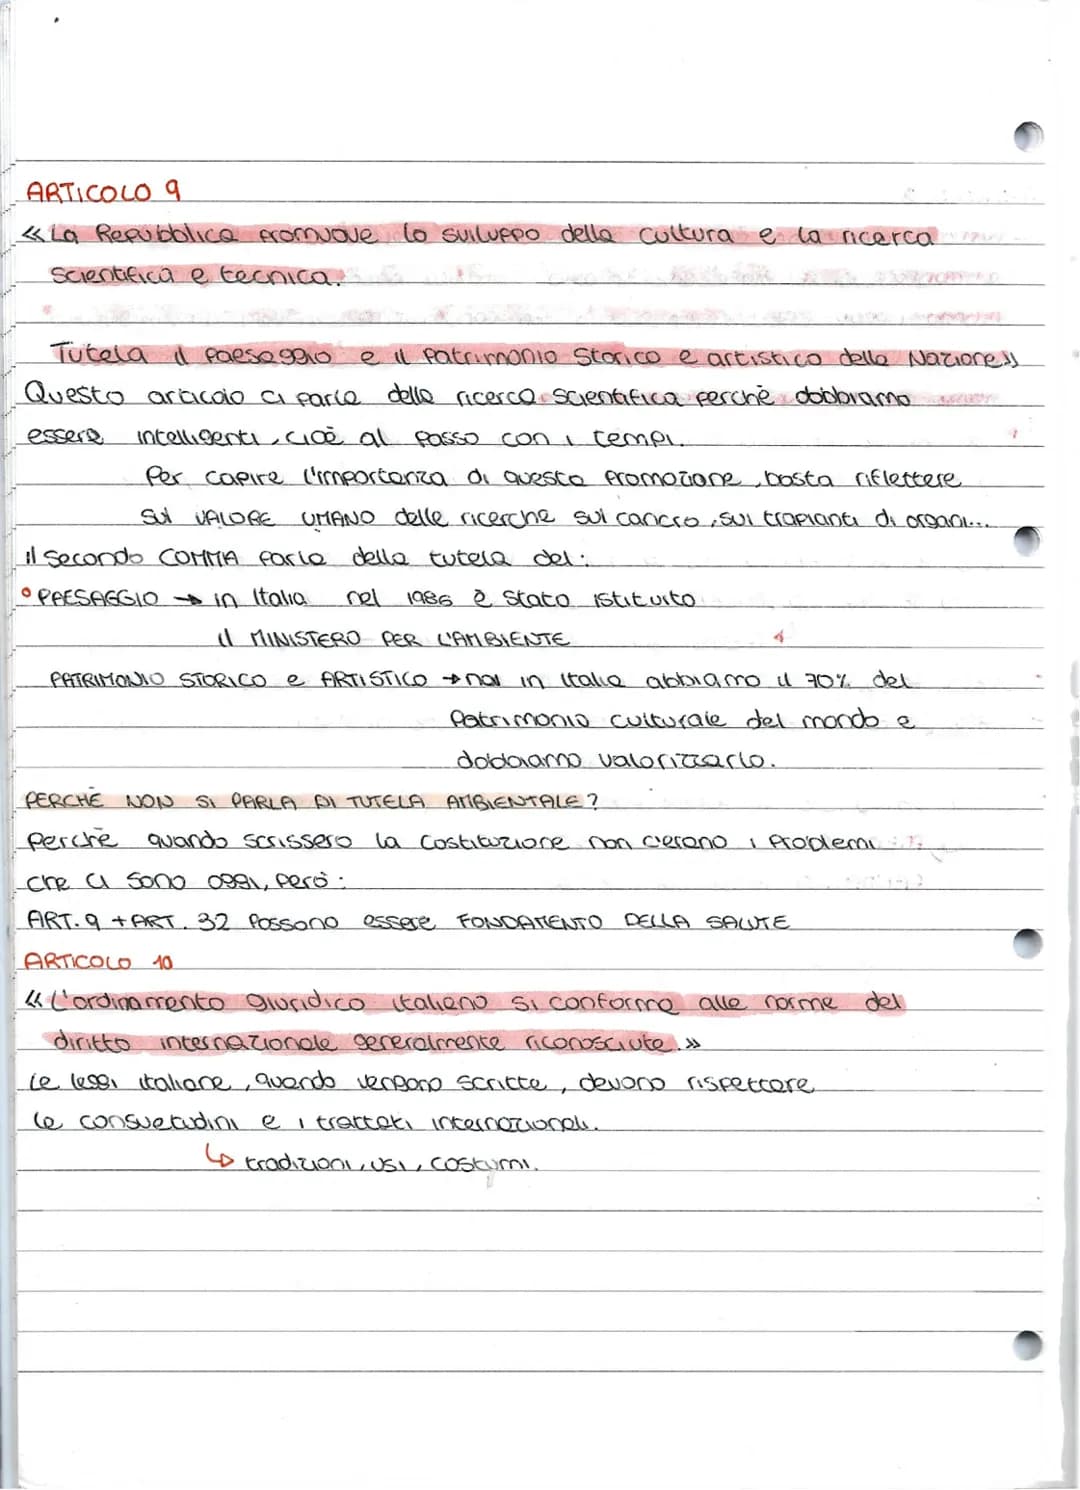 ARTICOLO 9
«La Repubblica promuove lo sviluppo della cultura e la ricerca
scientifica e tecnica.
Tutela il paesaggio e il patrimonio storico e artistico della Nazione»
Questo articolo ci parla della ricerca scientifica perchè dobbiamo
essere intelligenti, cioè al passo con i tempi.
Per capire l'importanza di questa promozione, basta riflettere
sul VALORE UMANO delle ricerche sul cancro, sui trapianti di organi...
il secondo COMMA parla della tutela del:
• PAESAGGIO → in Italia nel 1986 è stato istituito
il MINISTERO PER L'AMBIENTE
PATRIMONIO STORICO e ARTISTICO → noi in Italia abbiamo il 70% del
patrimonio culturale del mondo e
dobbiamo valorizzarlo.
PERCHÈ NON SI PARLA DI TUTELA AMBIENTALE?
Perchè quando scrissero la Costituzione non c'erano i problemi
che ci sono oggi, però:
ART. 9 + ART. 32 possono essere FONDAMENTO DELLA SALUTE
ARTICOLO 10
«L'ordinamento giuridico italiano si conforma alle norme del
diritto internazionale generalmente riconosciute.»
Le leggi italiane, quando vengono scritte, devono rispettare
le consuetudini e i trattati internazionali.
↳ tradizioni, usi, costumi.